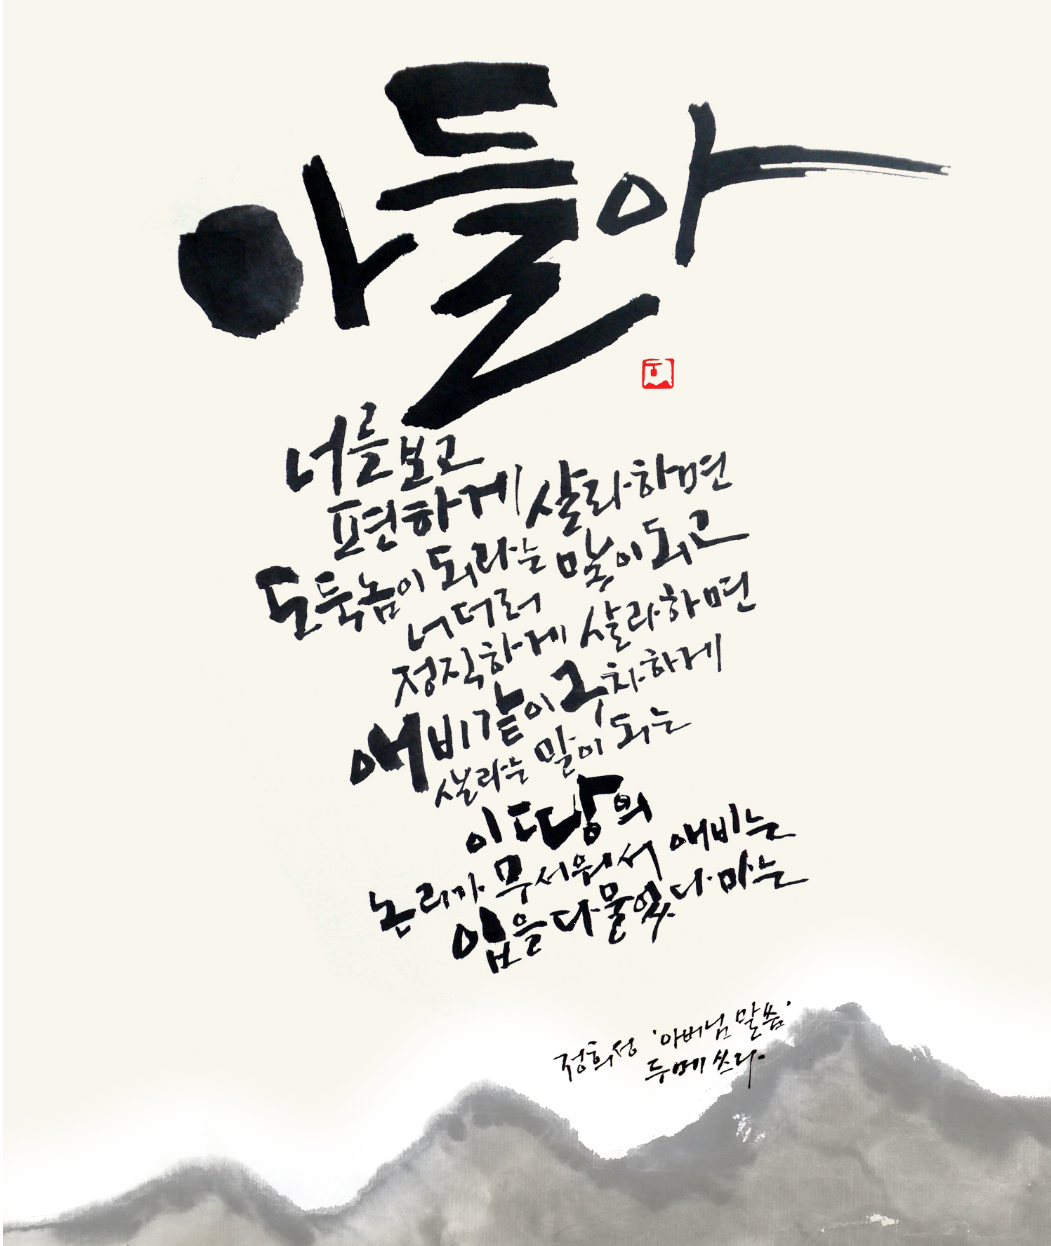 아들아
너를 보고
편하게 살라하면
도둑놈이 되라는 말이 되고
너더러
정직하게 살라하면
애비같이 구차하게
살라는 말이 되는
이 땅의
논리가 무서워서 애비는
입을 다물었다마는
정희성 '아버님 말씀'
두메 쓰다